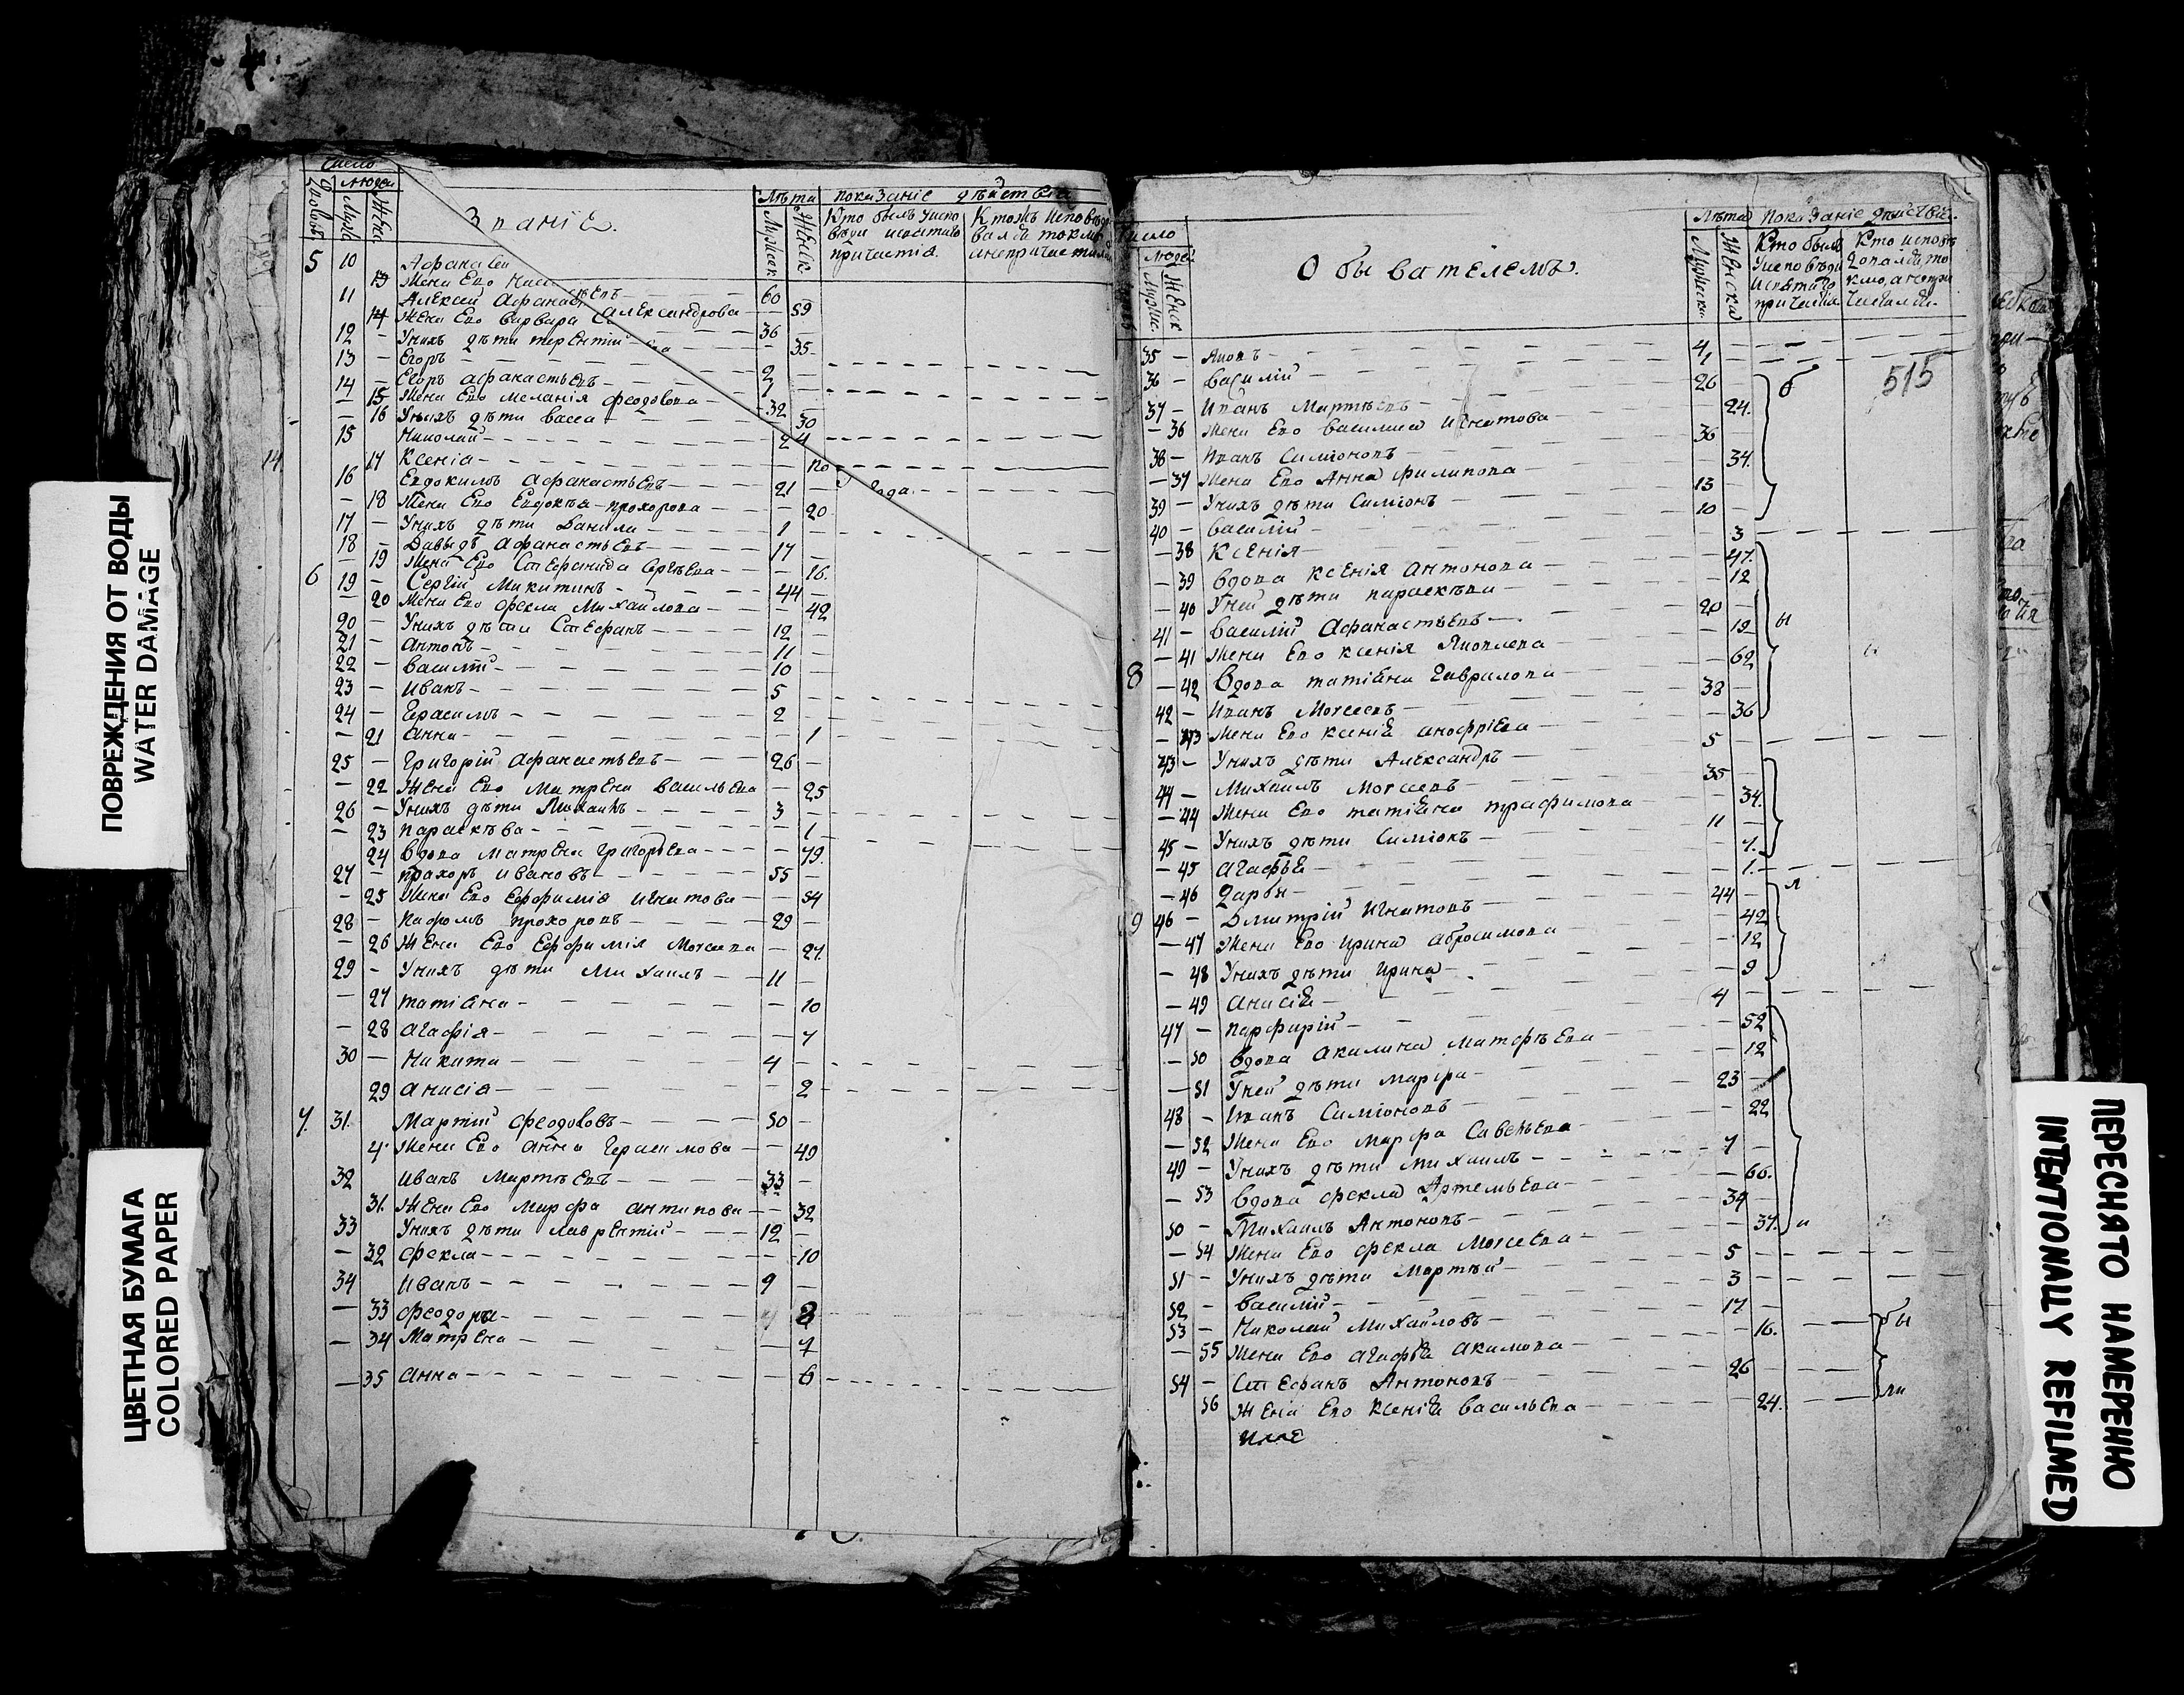 ПОВРЕЖДЕНИЯ ОТ ВОДЫ
WATER DAMAGE
ЦВЕТНАЯ БУМАГА
COLORED PAPER
число
Дворовъ людей
Мужс Женс
Званіе.
Лѣта показаніе дѣйства
Мужеск Женск.
Кто былъ уиспо
вѣди исвятаго
причастія.
Ктожъ исповѣдо
валсѧ токмо
5 10 Афанасеи
13 Жена Ево
60
11 Алексѣй Афанасьевъ
59
14 Жена Ево варвара Александрова
36
12 - Унихъ дѣти терентии
35
13 - Егоръ - 2
14 - Егоръ афанасьевъ - 32
- 15 Жена Ево меланія феодоова - 30
- 16 Унихъ дѣти васса
15 Николай - 2
17 Ксенія
16 Евдокимъ Афанасьевъ - 21 -
- 18 Жена Ево Евдокѣа прохорова - - 20
17 - Унихъ дѣти Данила - 1
18 - Давыдъ Афанасьевъ - 17 -
- 19 Жена Ево Стефанида Сергѣева - - 16.
6 19 - Сергіи Микитинъ - 44 -
- 20 Жена Ево фекла Михайлова - - 42
20 - Унихъ дѣти Стефанъ - 12 -
21 - Антонъ - 11 -
22 - василій - 10 -
23 - Иванъ - 5
24 - Герасимъ - 2
- 21 Анна - - 1
25 - Григорій Афанасьевъ - 26 -
- 22 Жена Ево Матрена васильева - 25
26 - Унихъ дѣти Михаилъ - 3
- 23 параскѣва - - 1
24 вдова Матрена Григорьева - - 79.
27 - прохоръ ивановъ - 55 -
- 25 Жена Ево Еффимія игнатова - 54
28 - Пафомъ прохоровъ - 29 -
- 26 Жена Ево Еффимія Мосеева - 27
29 - Унихъ дѣти Михаилъ - 11 -
- 27 татіяна - - 10
- 28 Агафія - - 7
30 - Никита - 4 -
29 Анисія - - 2
7. 31. Мартіи феодоовъ - 50 -
4 Жена Ево Анна Герасимова - 49
32 Иванъ Мартѣевъ - 33 -
31. Жена Ево Марфа антипова - 32
33 Унихъ дѣти лаврентіи - 12 -
- 32 фекла - - 10
34 Иванъ - 9 -
- 33 феодора - 8
- 34 Матрена - 7
- 35 Анна - - 6
число
людей
Мужс. Женск
Обывателемъ.
Лѣта показаніе дѣйствія.
Мужески Женска
Кто былъ
уисповѣди
исвятаго
причастія
Кто испо
515
35 - Яковъ - 4
36 - василій - 1
37 - Иванъ Мартѣевъ - 26
- 36 Жена Ево василиса игнатова - 24.
38 - Иванъ Симіоновъ - 36
- 37 Жена Ево Анна филипова - 34.
39 - Унихъ дѣти Симіонъ - 13
40 - василій - 10
- 38 Ксенія - 3
- 39 вдова ксенія Антонова - 47.
- 40 Уней дѣти параскѣва - 12
41 - василій Афанасьевъ - 20
- 41 Жена Ево ксенія Яковлева - 19
8 - 42 вдова татіяна гаврилова - 62
42 - Иванъ Мосеевъ - 38
- 43 Жена Ево ксенія анофріева - 36
43 - Унихъ дѣти Александръ - 5
44 - Михаилъ Мосеевъ - 35
- 44 Жена Ево татіяна трафимова - 34.
45 - Унихъ дѣти Симіонъ - 11
- 45 агафья - 7.
- 46 дарья - 1.
9 46 - Дмитрій Игнатовъ - 44
- 47 Жена Ево ирина абросимова - 42
- 48 Унихъ дѣти ирина - 12
- 49 анисія - 9
47 - парфирій - 4
- 50 вдова акилина Матфѣева - 52
- 51 Уней дѣти марфа - 12
48 - Иванъ Симіоновъ - 23
- 52 Жена Ево марфа Савельева - 22
49 - Унихъ дѣти михаилъ - 7
- 53 вдова фекла Артемьева - 60.
50 - Михаилъ Антоновъ - 39
- 54 Жена Ево фекла Мосеева - 37.
51 - Унихъ дѣти Мартѣй - 5
52 - василій - 3
53 - Николай Михайловъ - 17
- 55 Жена Ево агафья акимова - 16.
54 - Стефанъ Антоновъ - 26
56 Жена Ево ксенія васильева - 24.
ПЕРЕСНЯТО НАМЕРЕННО
INTENTIONALLY REFILMED